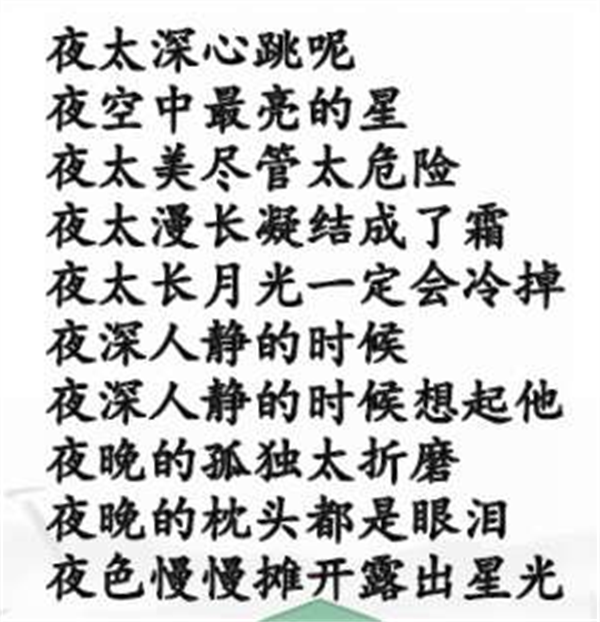 夜太深心跳呢
夜空中最亮的星
夜太美尽管太危险
夜太漫长凝结成了霜
夜太长月光一定会冷掉
夜深人静的时候
夜深人静的时候想起他
夜晚的孤独太折磨
夜晚的枕头都是眼泪
夜色慢慢摊开露出星光